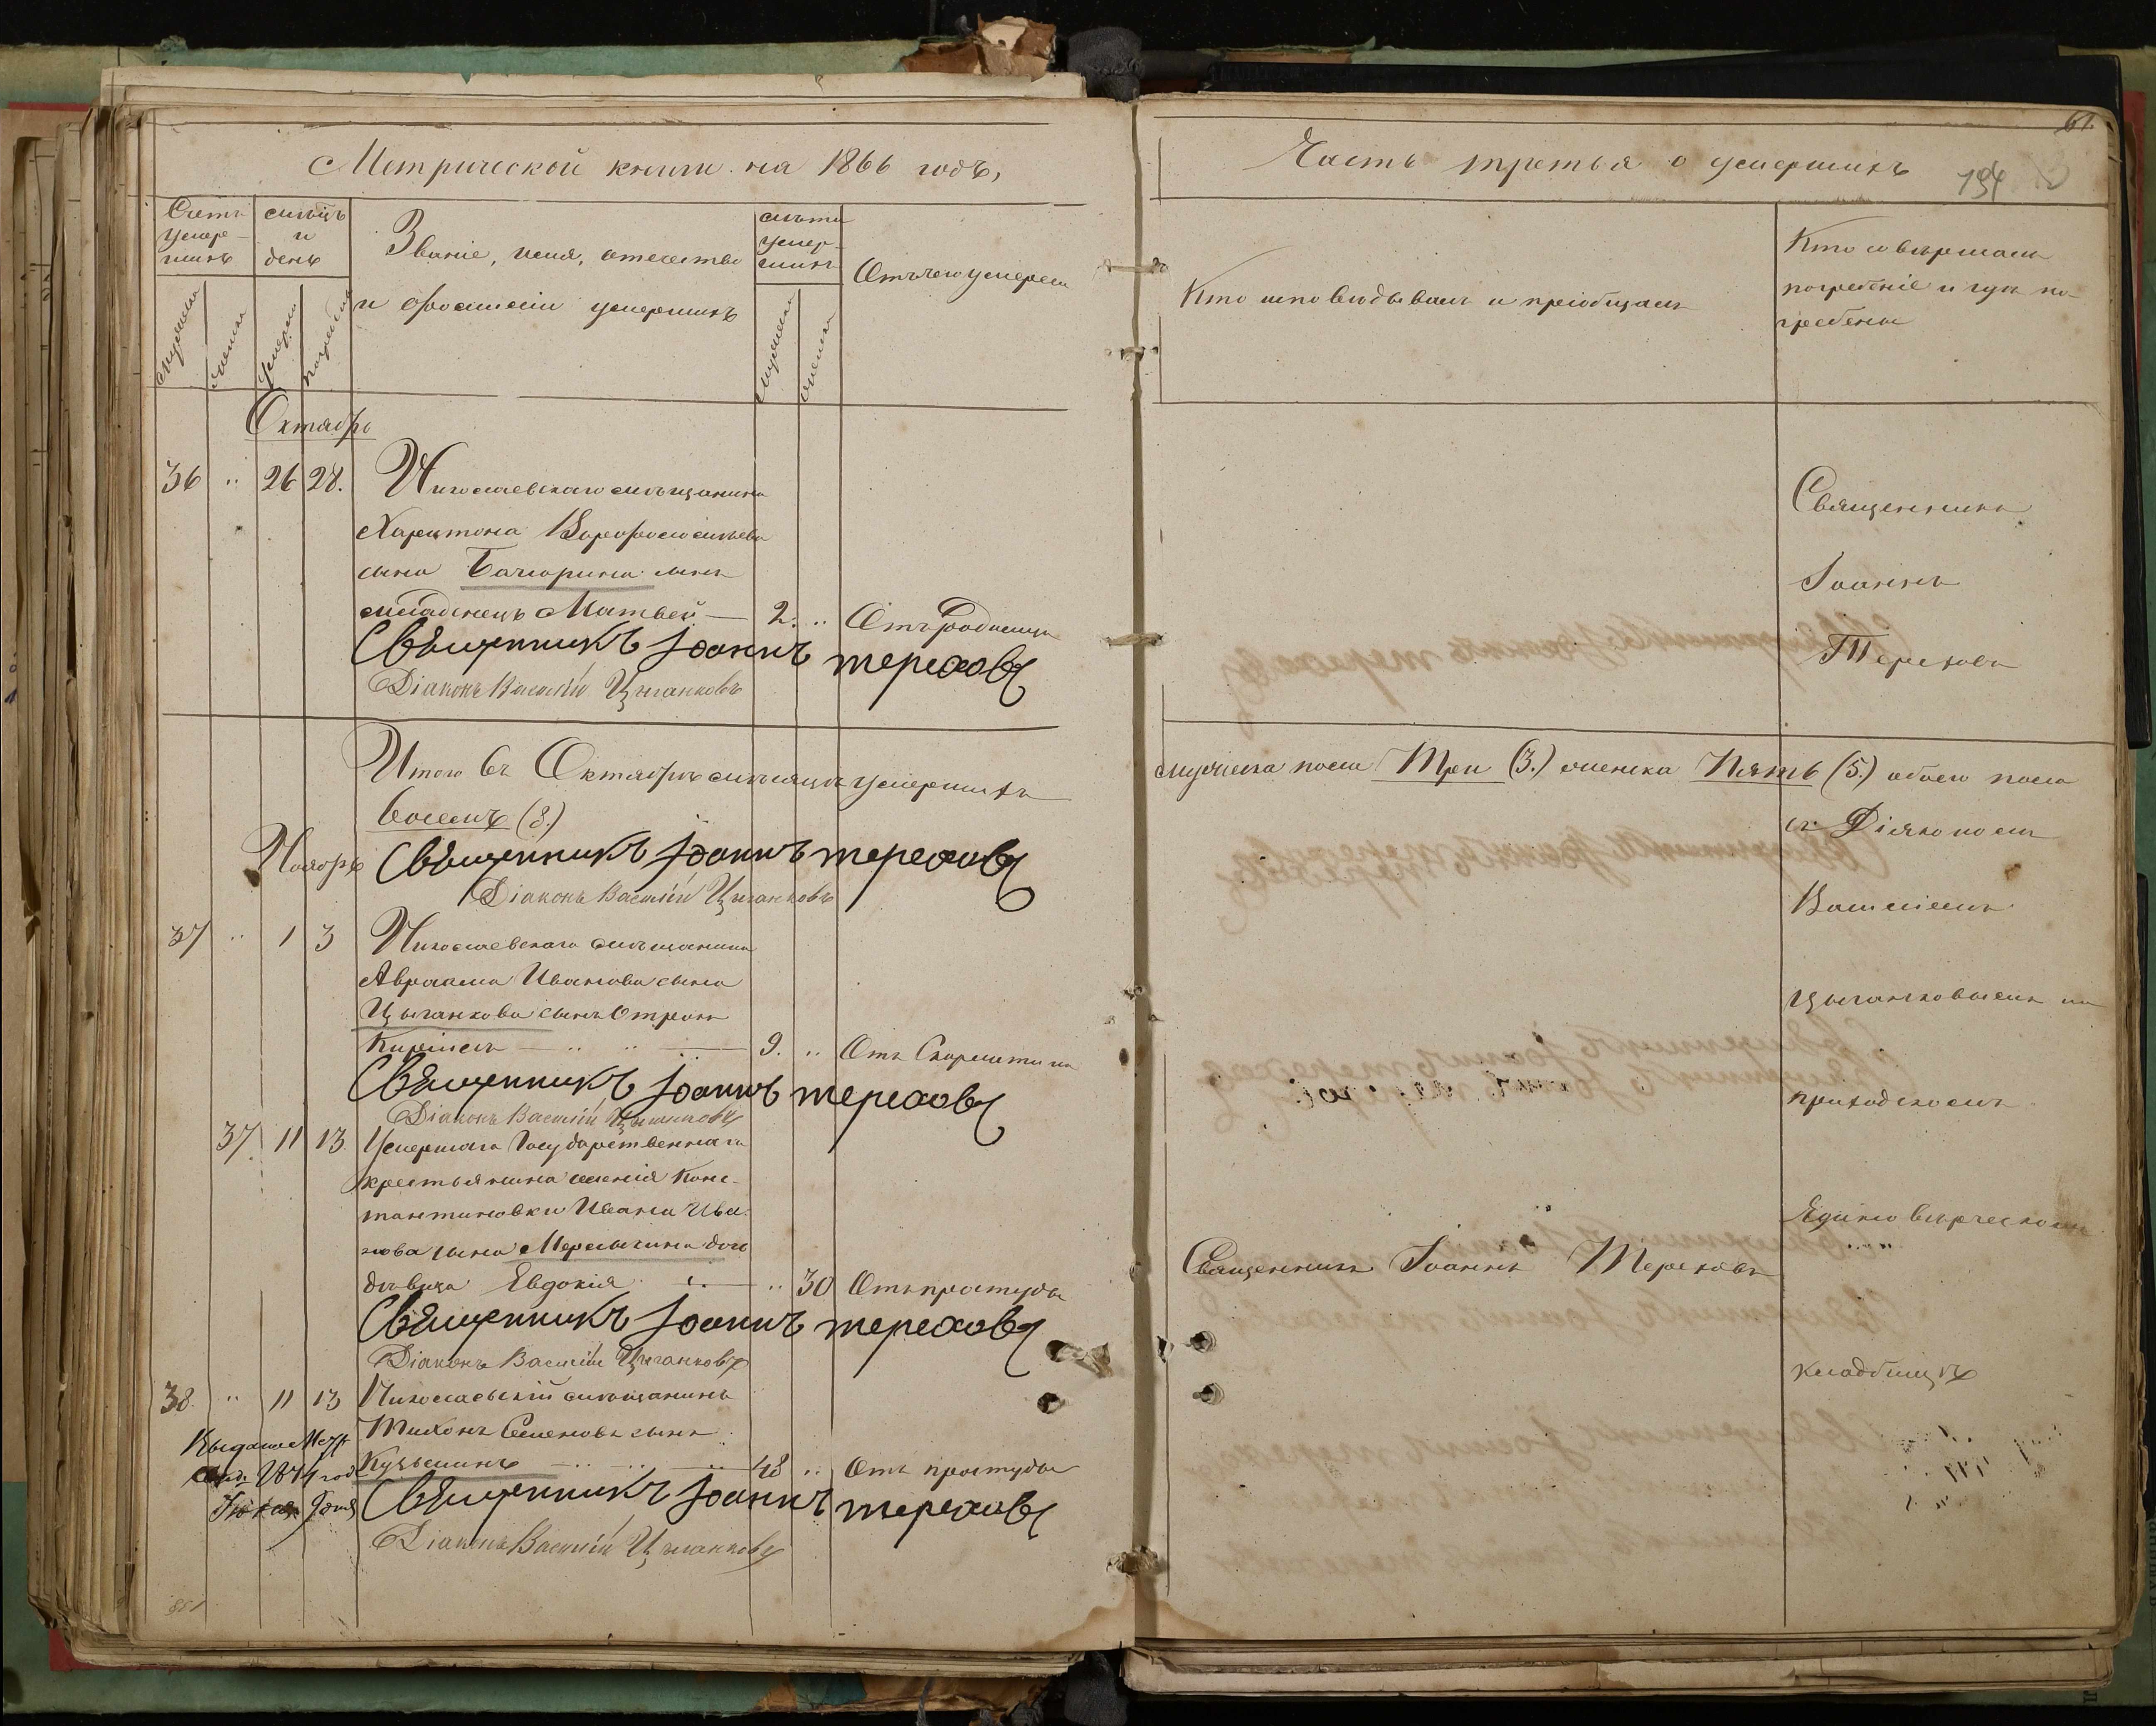 Метрической книги на 1866 годъ,
Счетъ
умер-
шихъ
мѣсяцъ
и
день
Званіе, имя, отчество
и фамиліи умершихъ
лѣта
умер-
шихъ
Отъ чего умерли
мужеска
женска
умерли
погребены
мужеска
женска
Октябрь
36 .. 26 28. Николаевскаго мѣщанина
Харитона
сына сынъ
младенецъ Матвей — 2. .. Отъ родимца
Священникъ Іоаннъ Тереховъ
Діаконъ Василій Цыганковъ
Итого въ Октябрѣ мѣсяцѣ умершихъ
восемь (8.)
Ноябрь
Священникъ Іоаннъ Тереховъ
Діаконъ Василій Цыганковъ
37 .. 1 3 Николаевскаго мѣщанина
Авраама Иванова сына
Цыганкова сынъ Отрокъ
— .. .. — 9. .. Отъ Скарлатины
Священникъ Іоаннъ Тереховъ
Діаконъ Василій Цыганковъ
37. 11 13. Умершаго Государственнаго
крестьянина селенія Конс-
тантиновки Ивана Ива-
нова сына дочь
дѣвица Евдокія — .. 30 Отъ простуды
Священникъ Іоаннъ Тереховъ
Діаконъ Василій Цыганковъ
38. .. 11 13 Николаевскій мѣщанинъ
Тихонъ Семеновъ сынъ
Кузьминъ — .. .. 48 .. Отъ простуды
Священникъ Іоаннъ Тереховъ
Діаконъ Василій Цыганковъ
61.
Часть третья о умершихъ
194
Кто исповѣдывалъ и пріобщалъ
Кто совершалъ
погребеніе и гдѣ по-
гребены
Священникъ
Іоаннъ
Тереховъ
мужеска пола Три (3.) женска Пять (5.) обоего пола
съ Діякономъ
Василіемъ
Цыганковымъ на
приходскомъ
Единовѣрческомъ
Священникъ Іоаннъ Тереховъ
кладбищѣ